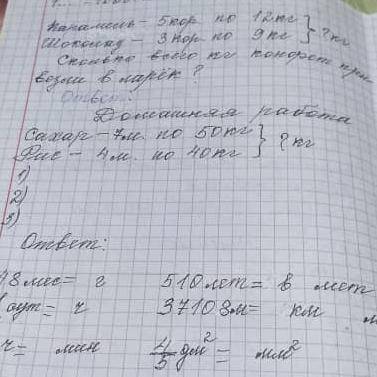 Карамель - 5 кор. по 12 кг } ? кг
Шоколад - 3 кор. по 9 кг
Сколько всего кг конфет при
везли в ларёк?
Ответ:
Домашняя работа
Сахар - 7 м. по 50 кг } ? кг
Рис - 4 м. по 40 кг
1)
2)
3)
Ответ:
48 мес = г 510 лет = в лет
сут = ч 37108 м = км м
ч = мин 4/5 дм² = мм²